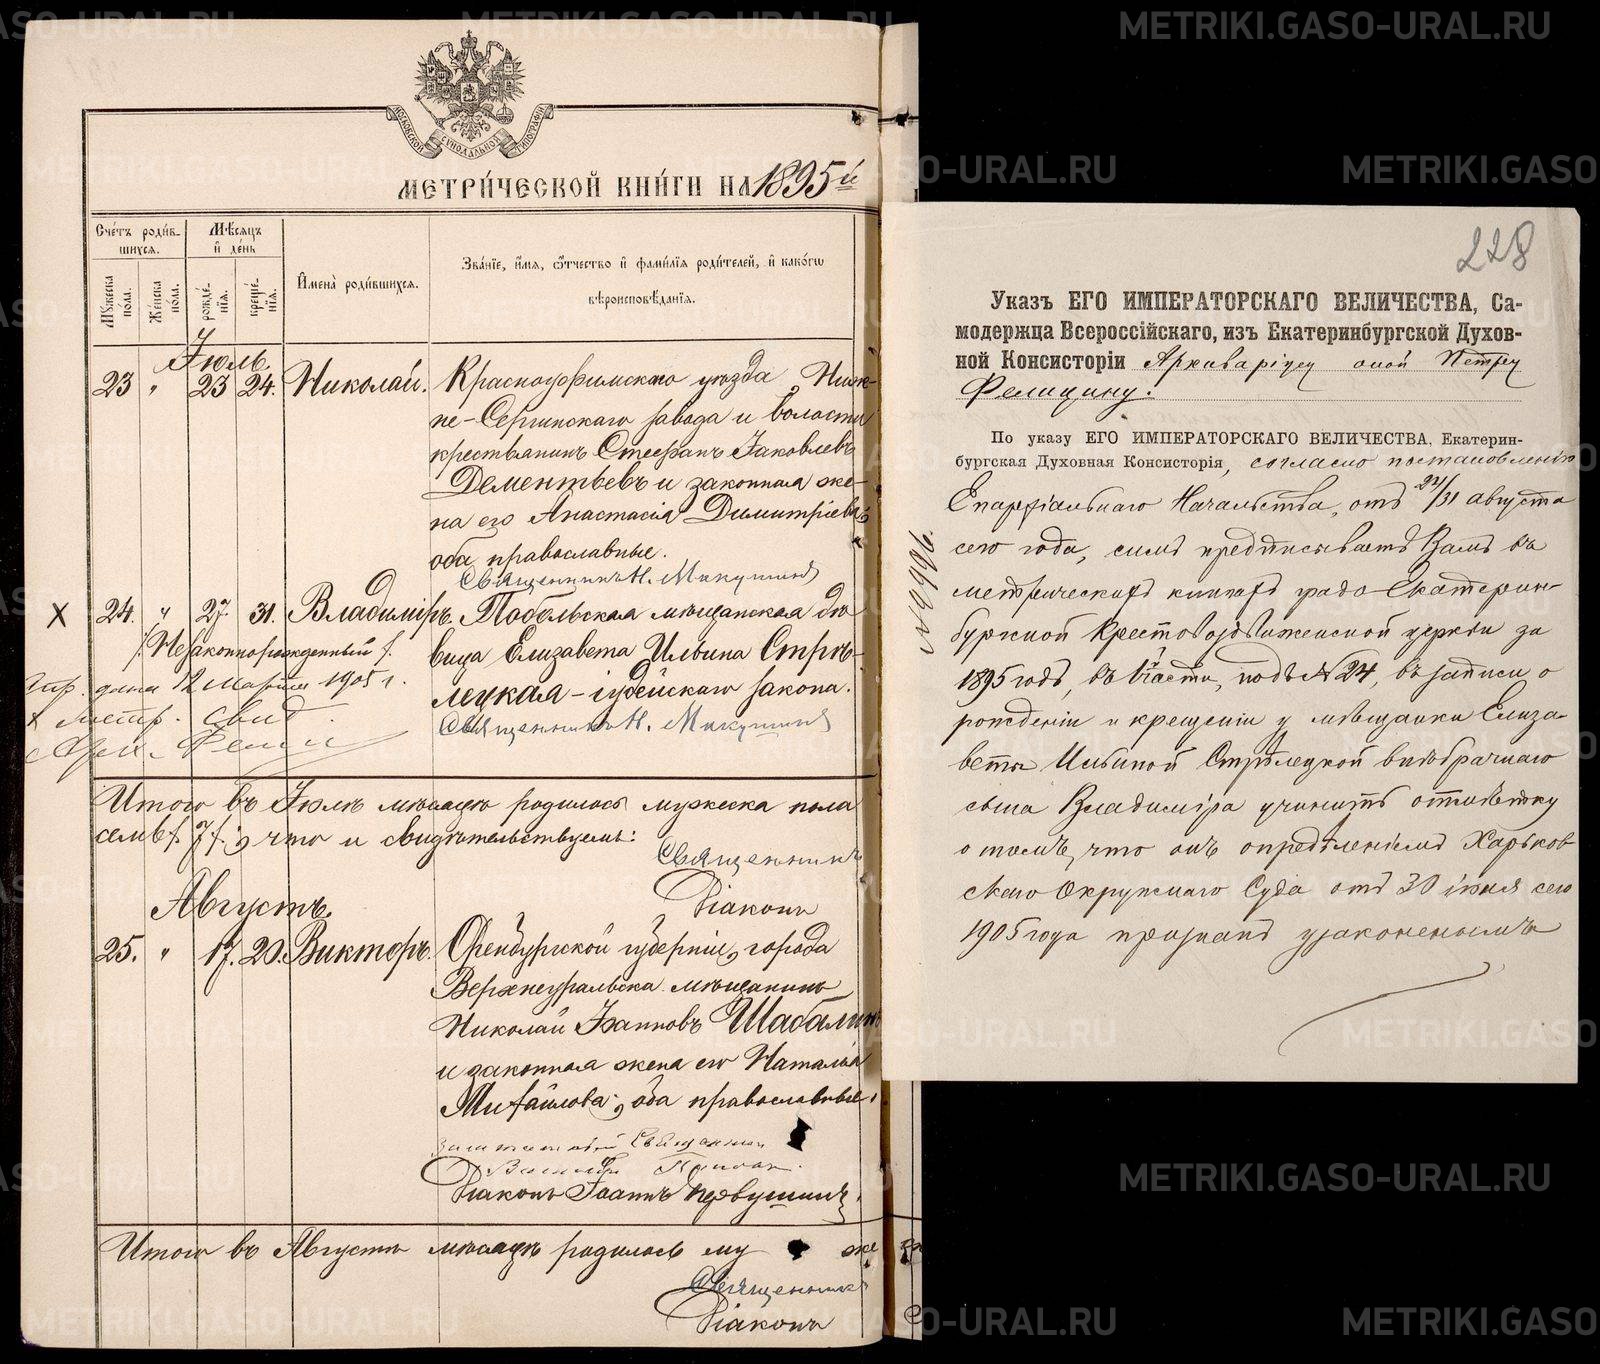 МОСКОВСКОЙ СѴНОДАЛЬНОЙ ТИПОГРАФІИ
МЕТРИ́ЧЕСКОЙ КНИ́ГИ НА 1895й
Сче́тъ роди́в-
шихся.
Мѣ́сяцъ
и҆ де́нь
Му́жеска
по́ла.
Же́нска
по́ла.
рожде́-
нїя.
креще́-
нїя.
И҆мена̀ роди́вшихся.
Зва́нїе, и҆́мя, ѻ҆́тчество и҆ фами́лїя роди́телей, и҆ како́гѡ
вѣроисповѣ́данїя.
Іюль
23 " 23 24. Николай. Красноуфимскаго уѣзда, Ниж-
не-Сергинскаго завода и волости
крестьянинъ Стефанъ Іаковлевъ
Дементьевъ и законная же-
на его Анастасія Димитріева,
оба православные.
Священникъ Н. Микушинъ
X 24. " 27. 31. Владиміръ. Тобольская мѣщанская дѣ-
/Незаконнорожденный/. вица Елизавета Ильина Стрѣ-
дана 12 Марта 1905 г. лецкая - іудейскаго закона.
метр. свид. Священникъ Н. Микушинъ
Итого въ Іюлѣ мѣсяцѣ родилось мужеска пола
семь /7/, что и свидѣтельствуемъ:
Священникъ
Діаконъ
Августъ.
25. " 17. 20. Викторъ. Оренбургской губерніи, города
Верхнеуральска мѣщанинъ
Николай Іоанновъ Шабалинъ
и законная жена его Наталія
Михайлова; оба православные.
Заштатный Священникъ
Діаконъ Іоаннъ
Итого въ Августѣ мѣсяцѣ родилось му же
Священникъ
Діаконъ
228
Указъ ЕГО ИМПЕРАТОРСКАГО ВЕЛИЧЕСТВА, Са-
модержца Всероссійскаго, изъ Екатеринбургской Духов-
ной Консисторіи Архиваріусу оной Петру
Фелицину.
По указу ЕГО ИМПЕРАТОРСКАГО ВЕЛИЧЕСТВА, Екатерин-
бургская Духовная Консисторія, согласно постановленію
Епархіальнаго Начальства, отъ 22/31 августа
сего года, симъ предписываетъ Вамъ въ
метрическихъ книгахъ градо-Екатерин-
бургской Крестовоздвиженской церкви за
1895 годъ, въ I части, подъ № 24, въ записи о
рожденіи и крещеніи у мѣщанки Елиза-
веты Ильиной Стрѣлецкой внѣбрачнаго
сына Владиміра учинить отмѣтку
о томъ, что онъ опредѣленіемъ Харьков-
скаго Окружнаго Суда отъ 30 іюля сего
1905 года признанъ узаконеннымъ
METRIKI.GASO-URAL.RU